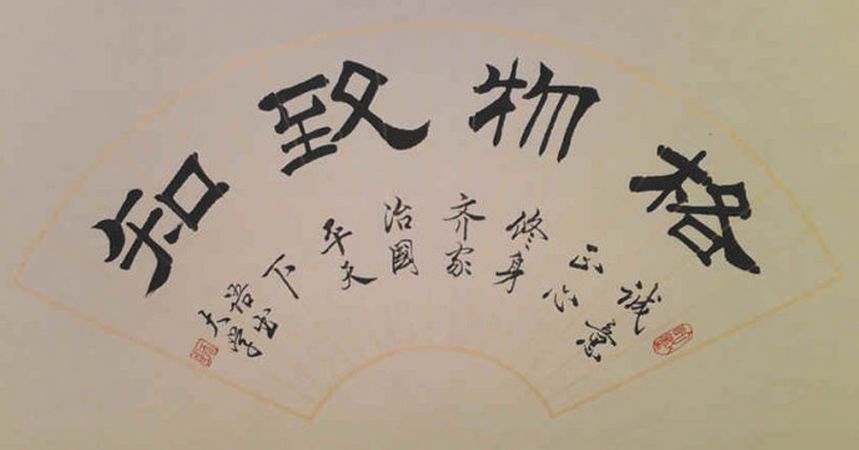 格物致知
诚意
正心
修身
齐家
治國
平天
下
大学